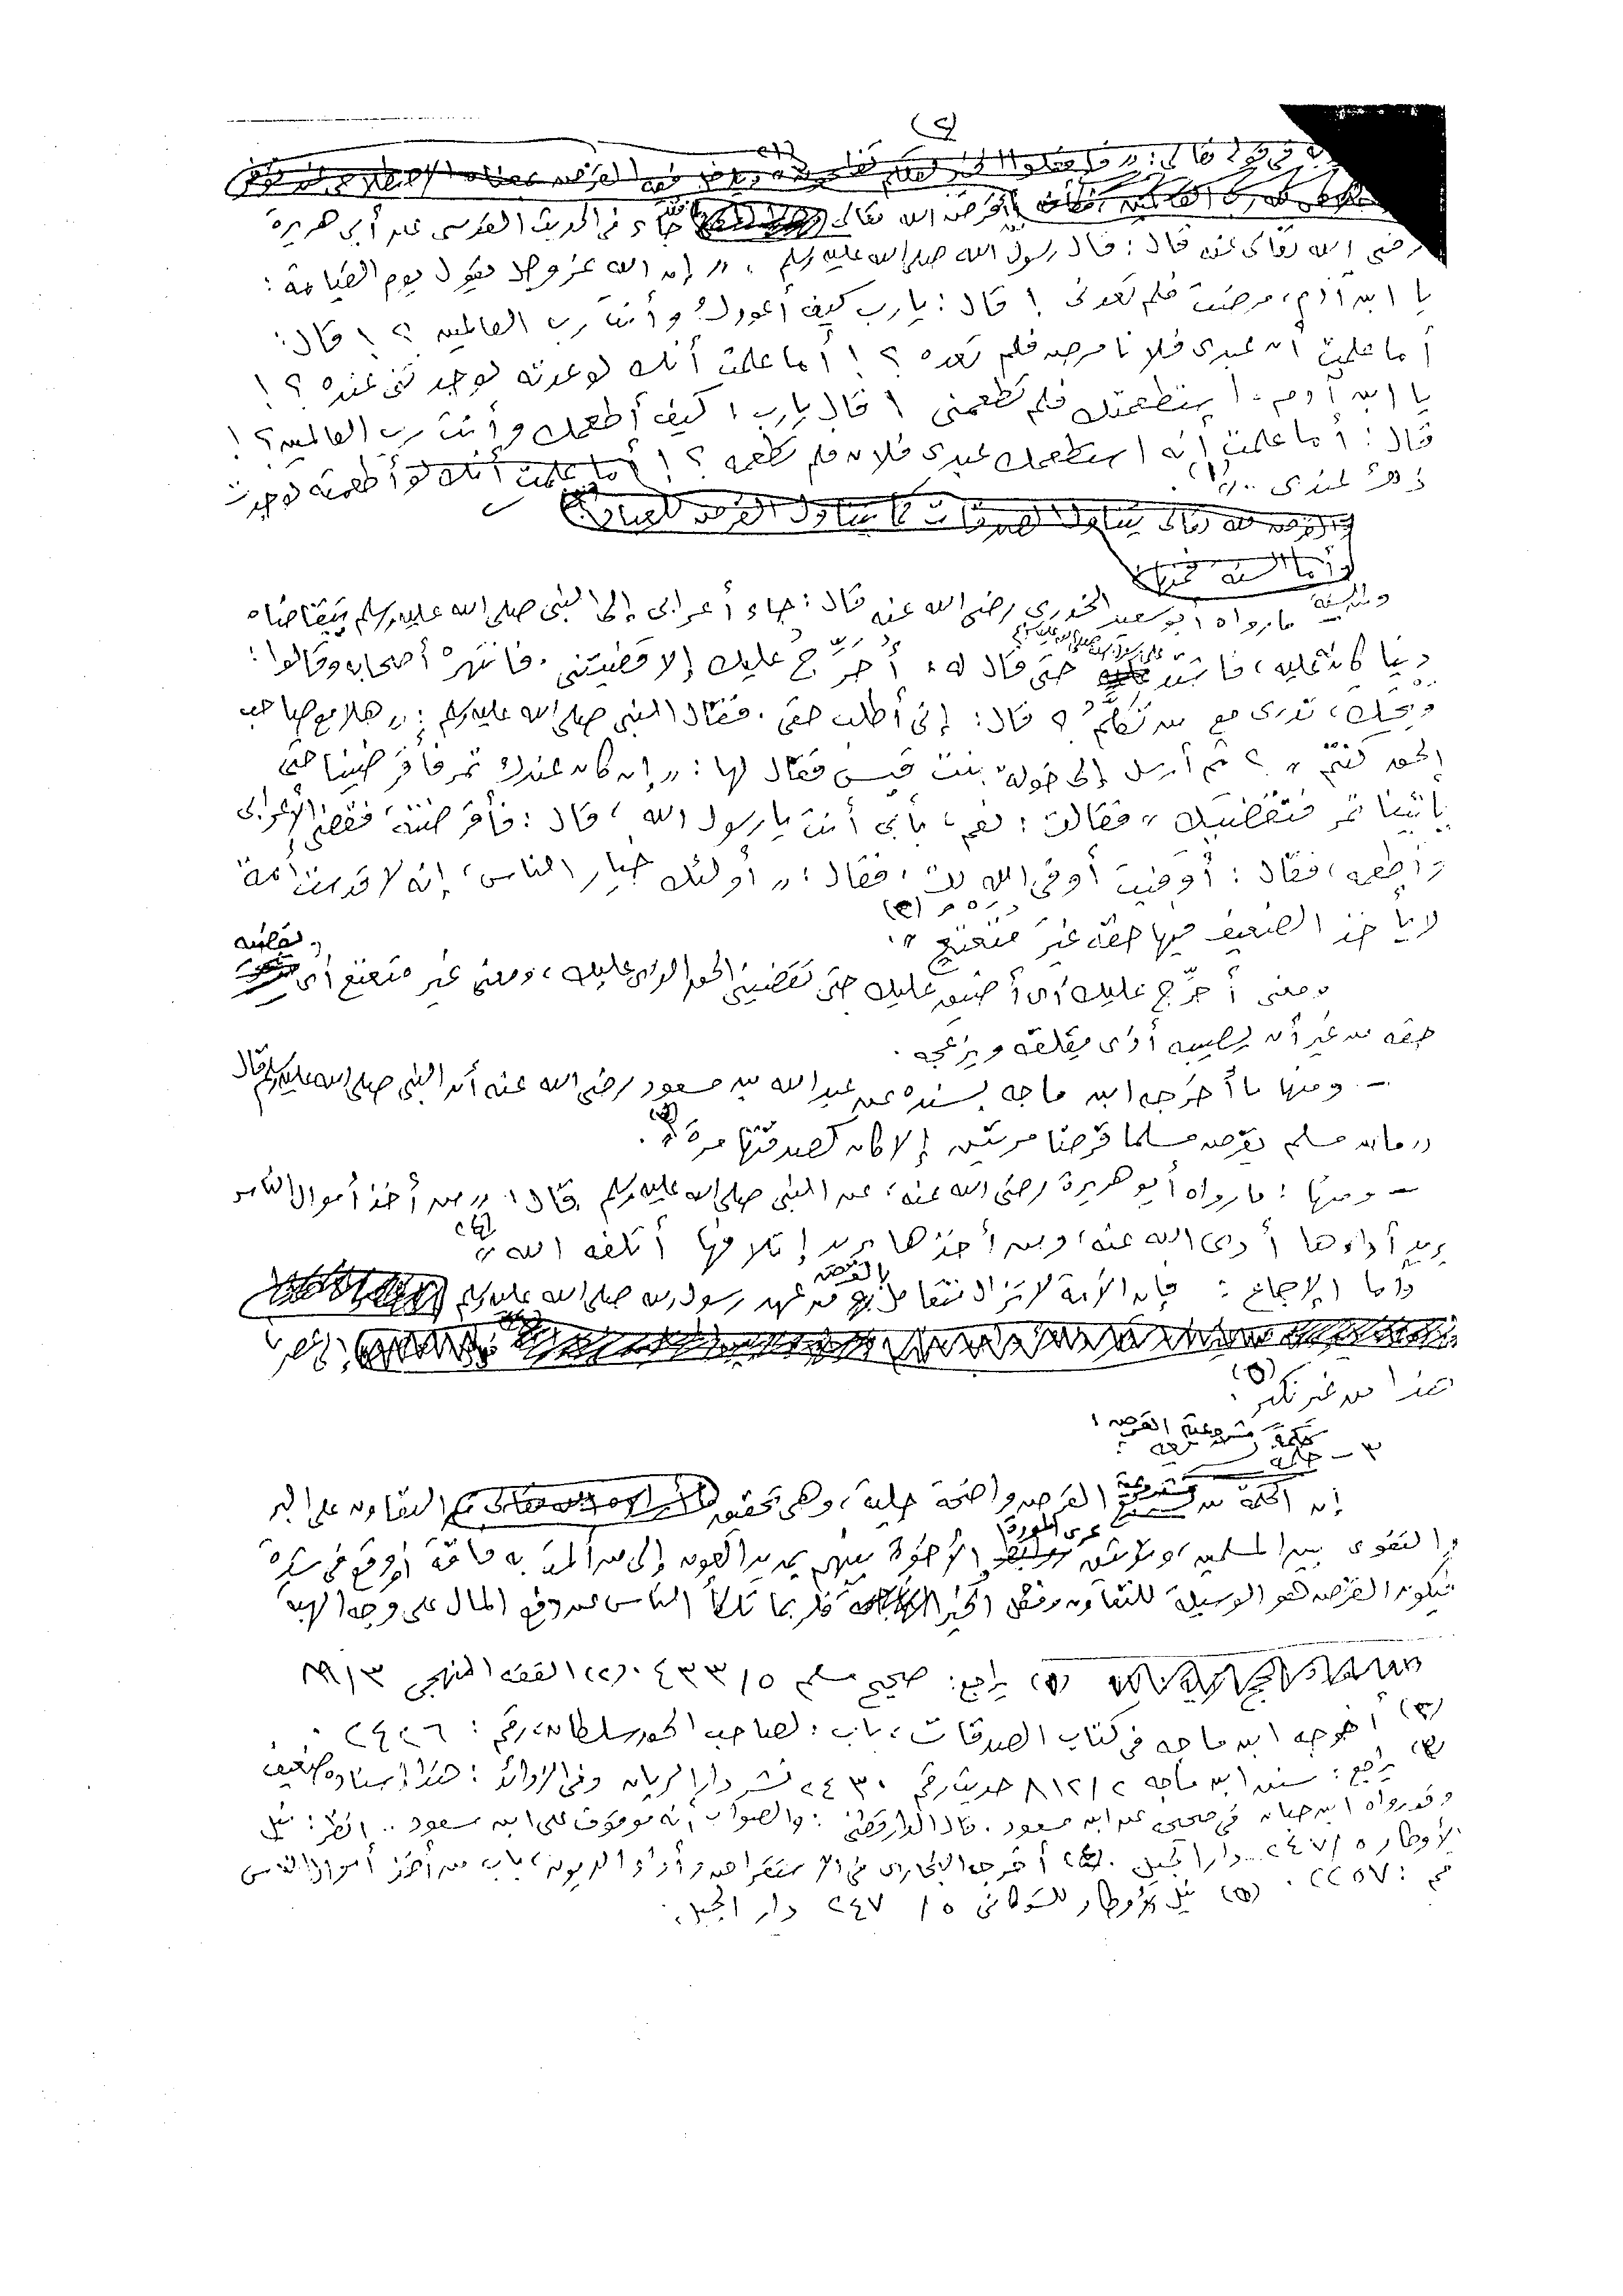 (٢)
في قوله تعالى: « وافعلوا الخير لعلكم تفلحون » (١)
القرض الله تعالى جاء في الحديث القدسي عن أبي هريرة
رضي الله تعالى عنه قال: قال رسول الله صلى الله عليه وسلم: « إن الله عز وجل يقول يوم القيامة:
يا ابن آدم، مرضت فلم تعدني! قال: يا رب كيف أعودك وأنت رب العالمين؟! قال:
أما علمت أن عبدي فلانا مرض فلم تعده؟! أما علمت أنك لو عدته لوجدتني عنده؟!
يا ابن آدم. استطعمتك فلم تطعمني! قال يا رب، كيف أطعمك وأنت رب العالمين؟!
قال: أما علمت أنه استطعمك عبدي فلان فلم تطعمه؟! أما علمت أنك لو أطعمته لوجدت
ذلك عندي .. » (١).
والقرض لله تعالى يتناول الصدقات كما يتناول القرض للعباد
وأما السنة فمنها
ومن السنة ما رواه أبو سعيد الخدري رضي الله عنه قال: جاء أعرابي إلى النبي صلى الله عليه وسلم يتقاضاه
دينا كان عليه، فاشتد على رسول الله صلى الله عليه وسلم حتى قال له: أُحَرِّجُ عليك إلا قضيتني. فانتهره أصحابه وقالوا:
ويحك، تدري مع من تكلم؟ قال: إني أطلب حقي. فقال النبي صلى الله عليه وسلم: « هلا مع صاحب
الحق كنتم »؟ ثم أرسل إلى خولة بنت قيس فقال لها: « إن كان عندك تمر فأقرضينا حتى
يأتينا تمر فنقضيك » فقالت: نعم، بأبي أنت يا رسول الله، قال: فأقرضته، فقضى الأعرابي
وأطعمه، فقال: أوفيت أوفى الله لك، فقال: « أولئك خيار الناس، إنه لا قدست أمة
لا يأخذ الضعيف فيها حقه غير متعتع » (٢).
ومعنى أحرِّج عليك أي أضيق عليك حتى تقضيني الحق الذي عليك، ومعنى غير متعتع أي نقضيه
حقه من غير أن يصيبه أذى يقلقه ويزعجه.
- ومنها ما أخرجه ابن ماجه بسنده عن عبد الله بن مسعود رضي الله عنه أن النبي صلى الله عليه وسلم قال
« ما من مسلم يقرض مسلما قرضا مرتين إلا كان كصدقتها مرة » (٣).
- ومنها: ما رواه أبو هريرة رضي الله عنه، عن النبي صلى الله عليه وسلم قال: « من أخذ أموال الناس
يريد أداءها أدى الله عنه، ومن أخذها يريد إتلافها أتلفه الله » (٤)
وأما الإجماع: فإن الأمة لا تزال تتعامل بالقرض من عهد رسول الله صلى الله عليه وسلم
إلى عصرنا
هذا من غير نكير (٥).
٣ - حكمة مشروعية القرض:
إن الحكمة من مشروعية القرض واضحة جلية، وهي تحقيق التعاون على البر
والتقوى بين المسلمين، وتوثيق عرى المودة الأخوة بينهم بمد يد العون إلى من ألمت به فاقة أو وقع في شدة
فيكون القرض هو الوسيلة للتعاون وفعل الخير فلربما تلكأ الناس عن دفع المال على وجه الهبة
(١) يراجع: صحيح مسلم ٥/ ٤٣٣. (٢) الفقه المنهجي ٣/
(٢) أخرجه ابن ماجه في كتاب الصدقات، باب: لصاحب الحق سلطان، رقم: ٢٤٢٦.
(٣) يراجع: سنن ابن ماجه ٢/ ٨١٢ حديث رقم ٢٤٣٠ نشر دار الريان وفي الزوائد: هذا إسناده ضعيف
وقد رواه ابن حبان في صحيحه عن ابن مسعود. قال الدارقطني: والصواب أنه موقوف على ابن مسعود .. انظر: نيل
الأوطار ٥/ ٢٤٧ دار الجيل. (٤) أخرجه البخاري في الاستقراض وأداء الديون، باب من أخذ أموال الناس
رقم: ٢٢٥٧. (٥) نيل الأوطار للشوكاني ٥/ ٢٤٧ دار الجيل.